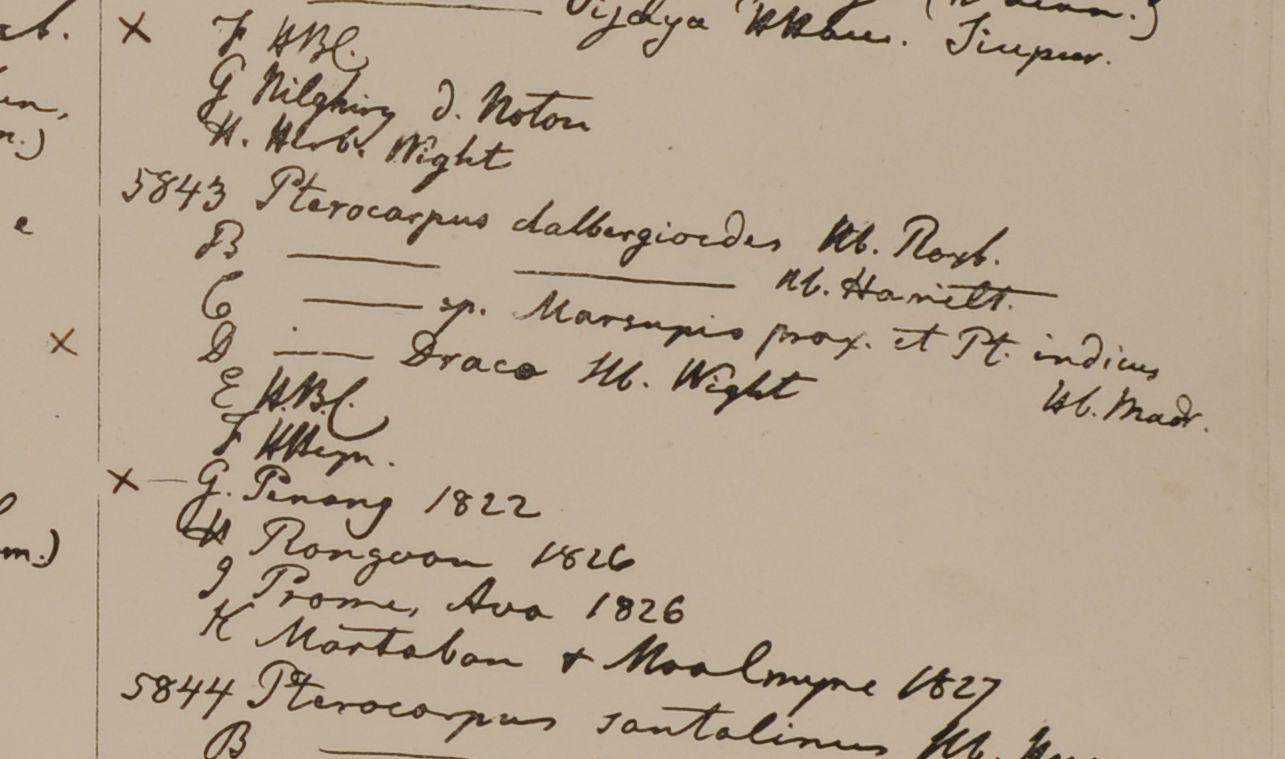 Vijaya HHam. Sirpur.
F HBC.
G Nilghiry D. Noton
H. Herb. Wight
5843 Pterocarpus dalbergioides Hb. Roxb.
B ——— ——— Hb. Hamilt.
C ——— sp. Marsupio prox. et Pt. indicus
Hb. Madr.
D ——— Draco Hb. Wight
E H.B.C.
F HHeyn.
G. Penang 1822
H Rangoon 1826
I Prome, Ava 1826
K Martaban & Moalmyne 1827
5844 Pterocarpus santalinus Hb.
B ———